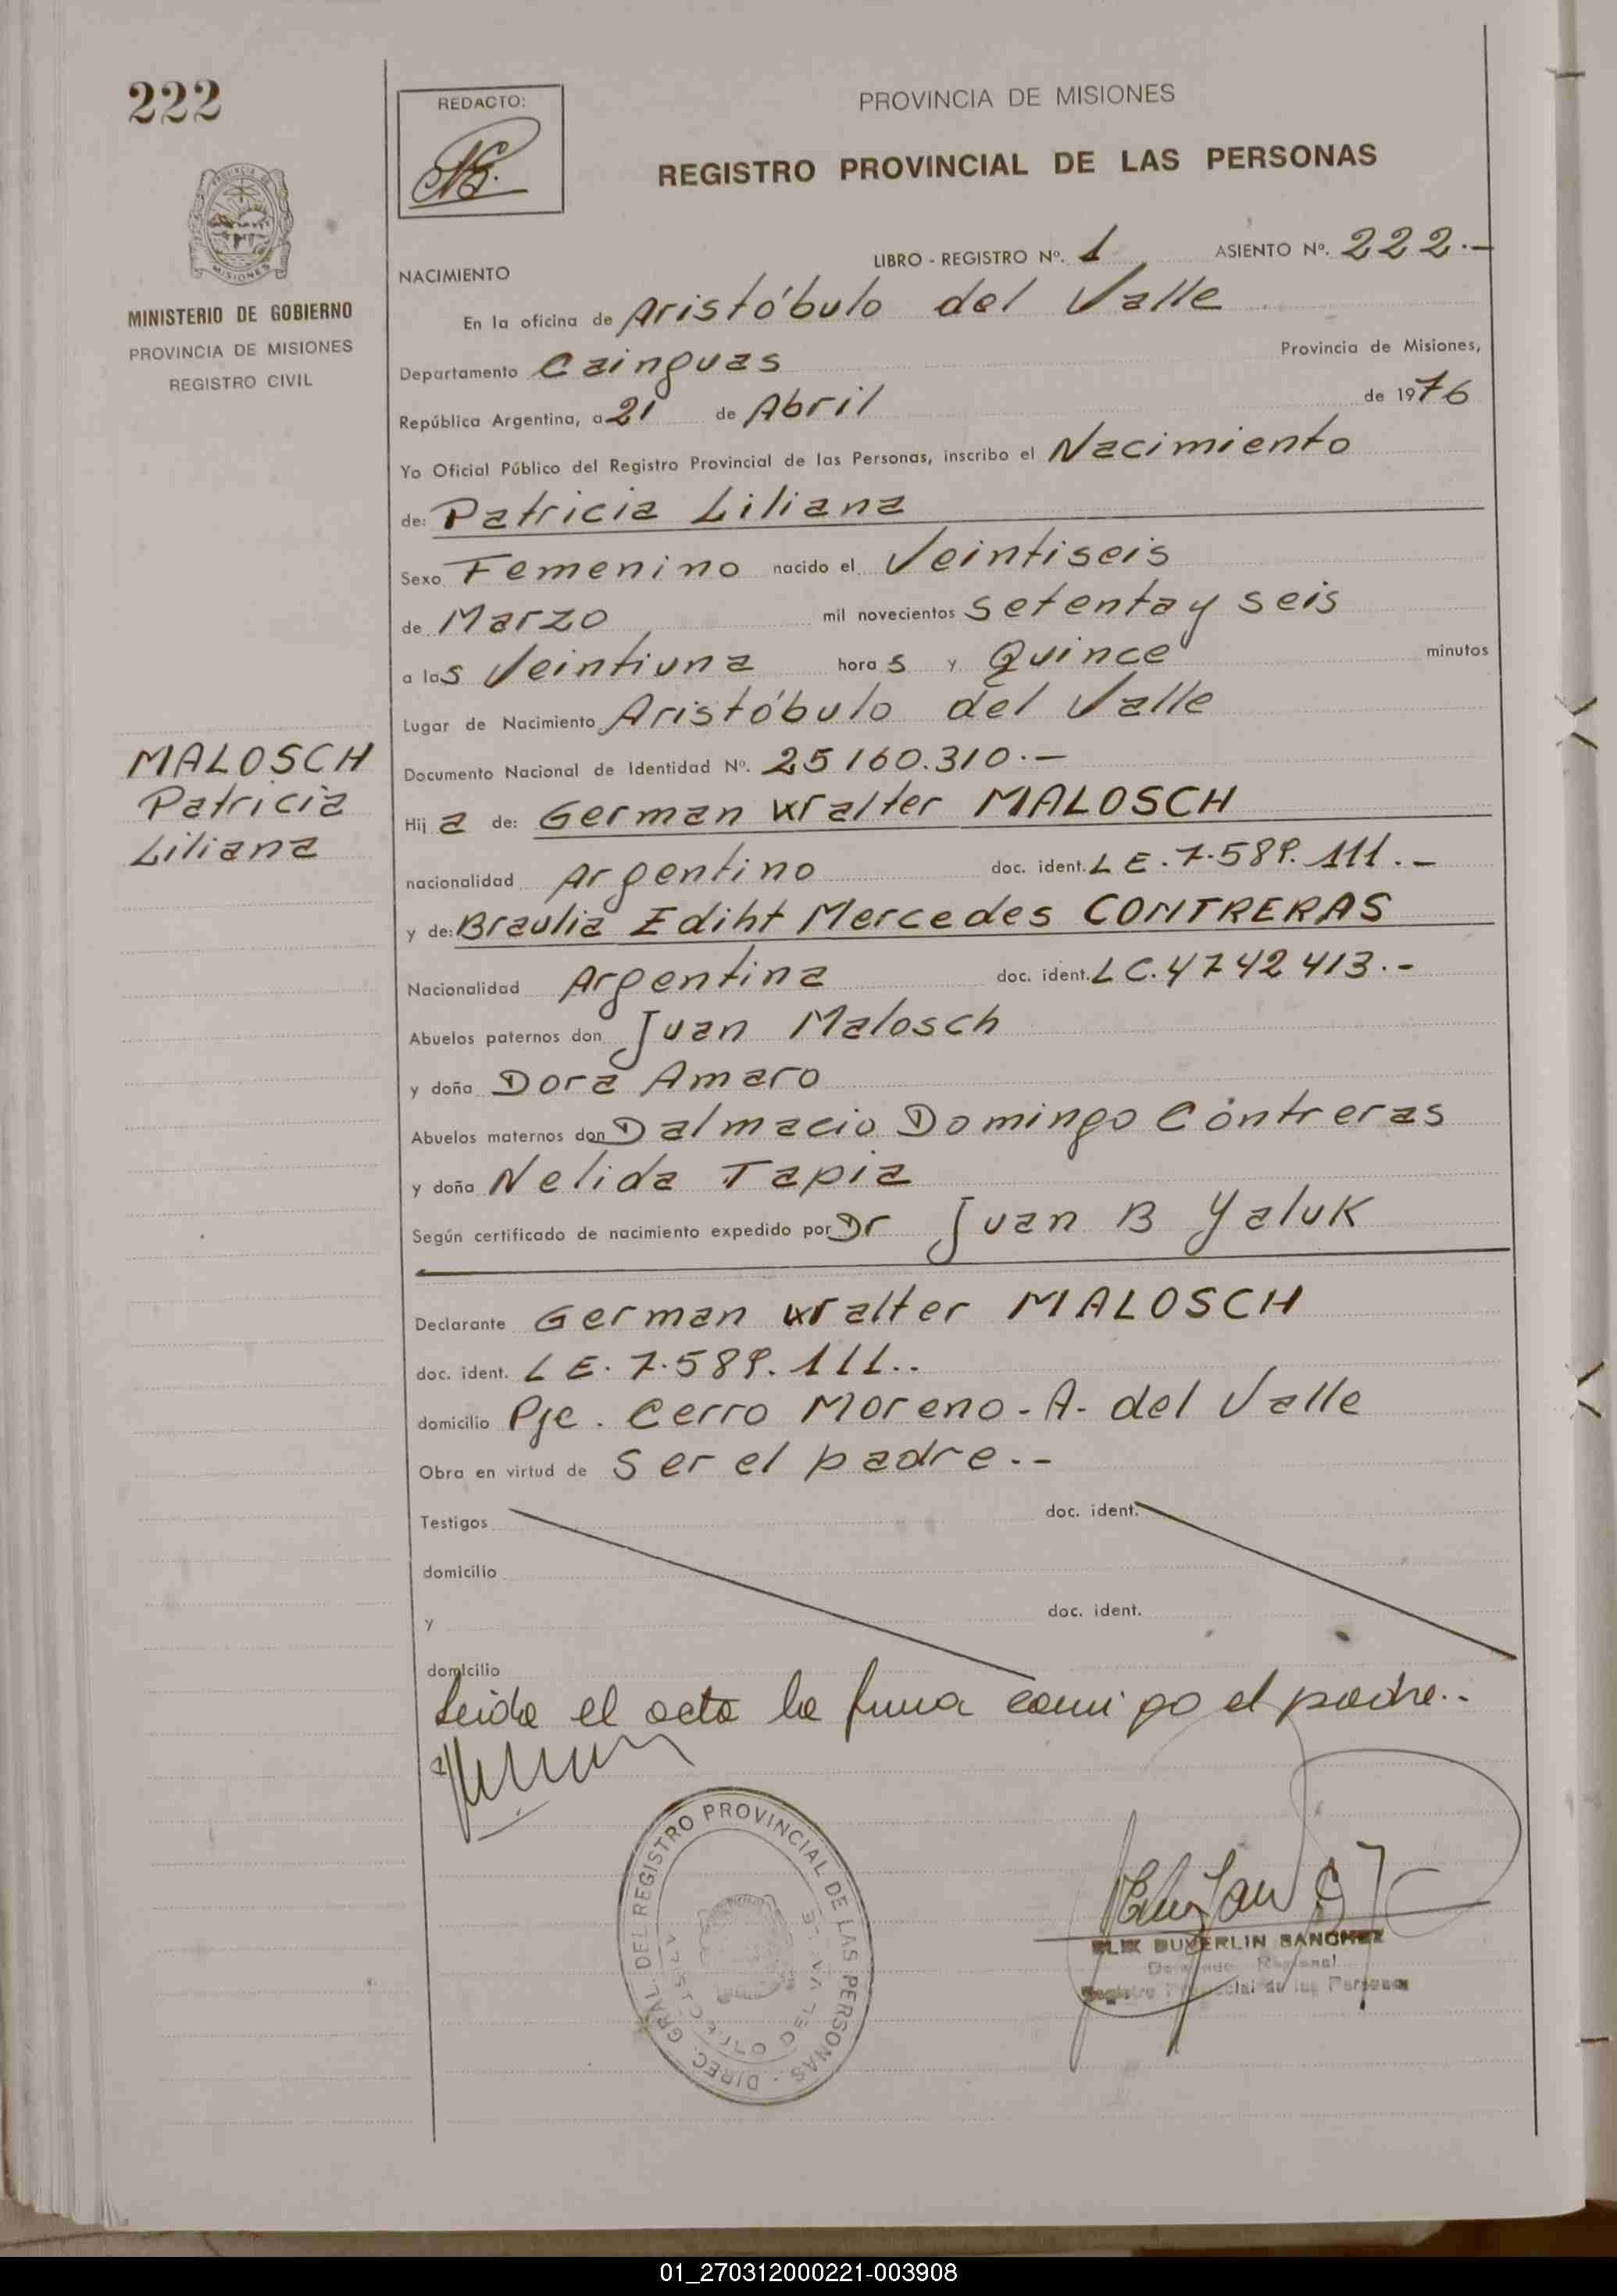 222
REDACTO:
PROVINCIA DE MISIONES
REGISTRO PROVINCIAL DE LAS PERSONAS
MISIONES
MINISTERIO DE GOBIERNO
PROVINCIA DE MISIONES
REGISTRO CIVIL
LIBRO - REGISTRO Nº. 1 ASIENTO Nº. 222.-
NACIMIENTO
En la oficina de Aristóbulo del Valle
Departamento Cainguas Provincia de Misiones,
República Argentina, a 21 de Abril de 1976
Yo Oficial Público del Registro Provincial de las Personas, inscribo el Nacimiento
de: Patricia Liliana
Sexo Femenino nacido el Veintiseis
de Marzo mil novecientos setenta y seis
a las Veintiuna horas y Quince minutos
Lugar de Nacimiento Aristóbulo del Valle
MALOSCH
Patricia
Liliana
Documento Nacional de Identidad Nº. 25160.310.-
Hija de: German Walter MALOSCH
nacionalidad Argentino doc. ident. LE.7.589.111.-
y de: Braulia Ediht Mercedes CONTRERAS
Nacionalidad Argentina doc. ident. LC.4742413.-
Abuelos paternos don Juan Malosch
y doña Dora Amaro
Abuelos maternos don Dalmacio Domingo Contreras
y doña Nelida Tapia
Según certificado de nacimiento expedido por Dr Juan B Yaluk
Declarante German Walter MALOSCH
doc. ident. LE.7.589.111..
domicilio Pje. Cerro Moreno-A-del Valle
Obra en virtud de Ser el padre.-
Testigos doc. ident.
domicilio
y doc. ident.
domicilio
Leida el acta la firma conmigo el padre..
DIREC. GRAL. DEL REGISTRO PROVINCIAL DE LAS PERSONAS
DEL VALLE
SANCHEZ
Regional
Registro Provincial de las Personas
01_270312000221-003908